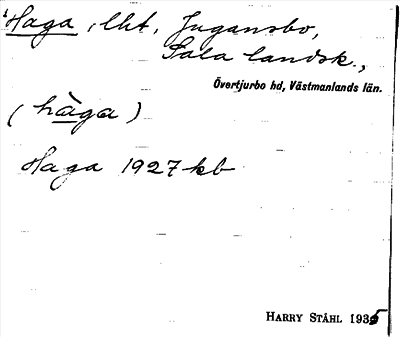 Haga, lht, Jugansbo,
Sala landsk.,
Övertjurbo hd, Västmanlands län.
(hàga)
Haga 1927 kb
HARRY STÅHL 1935